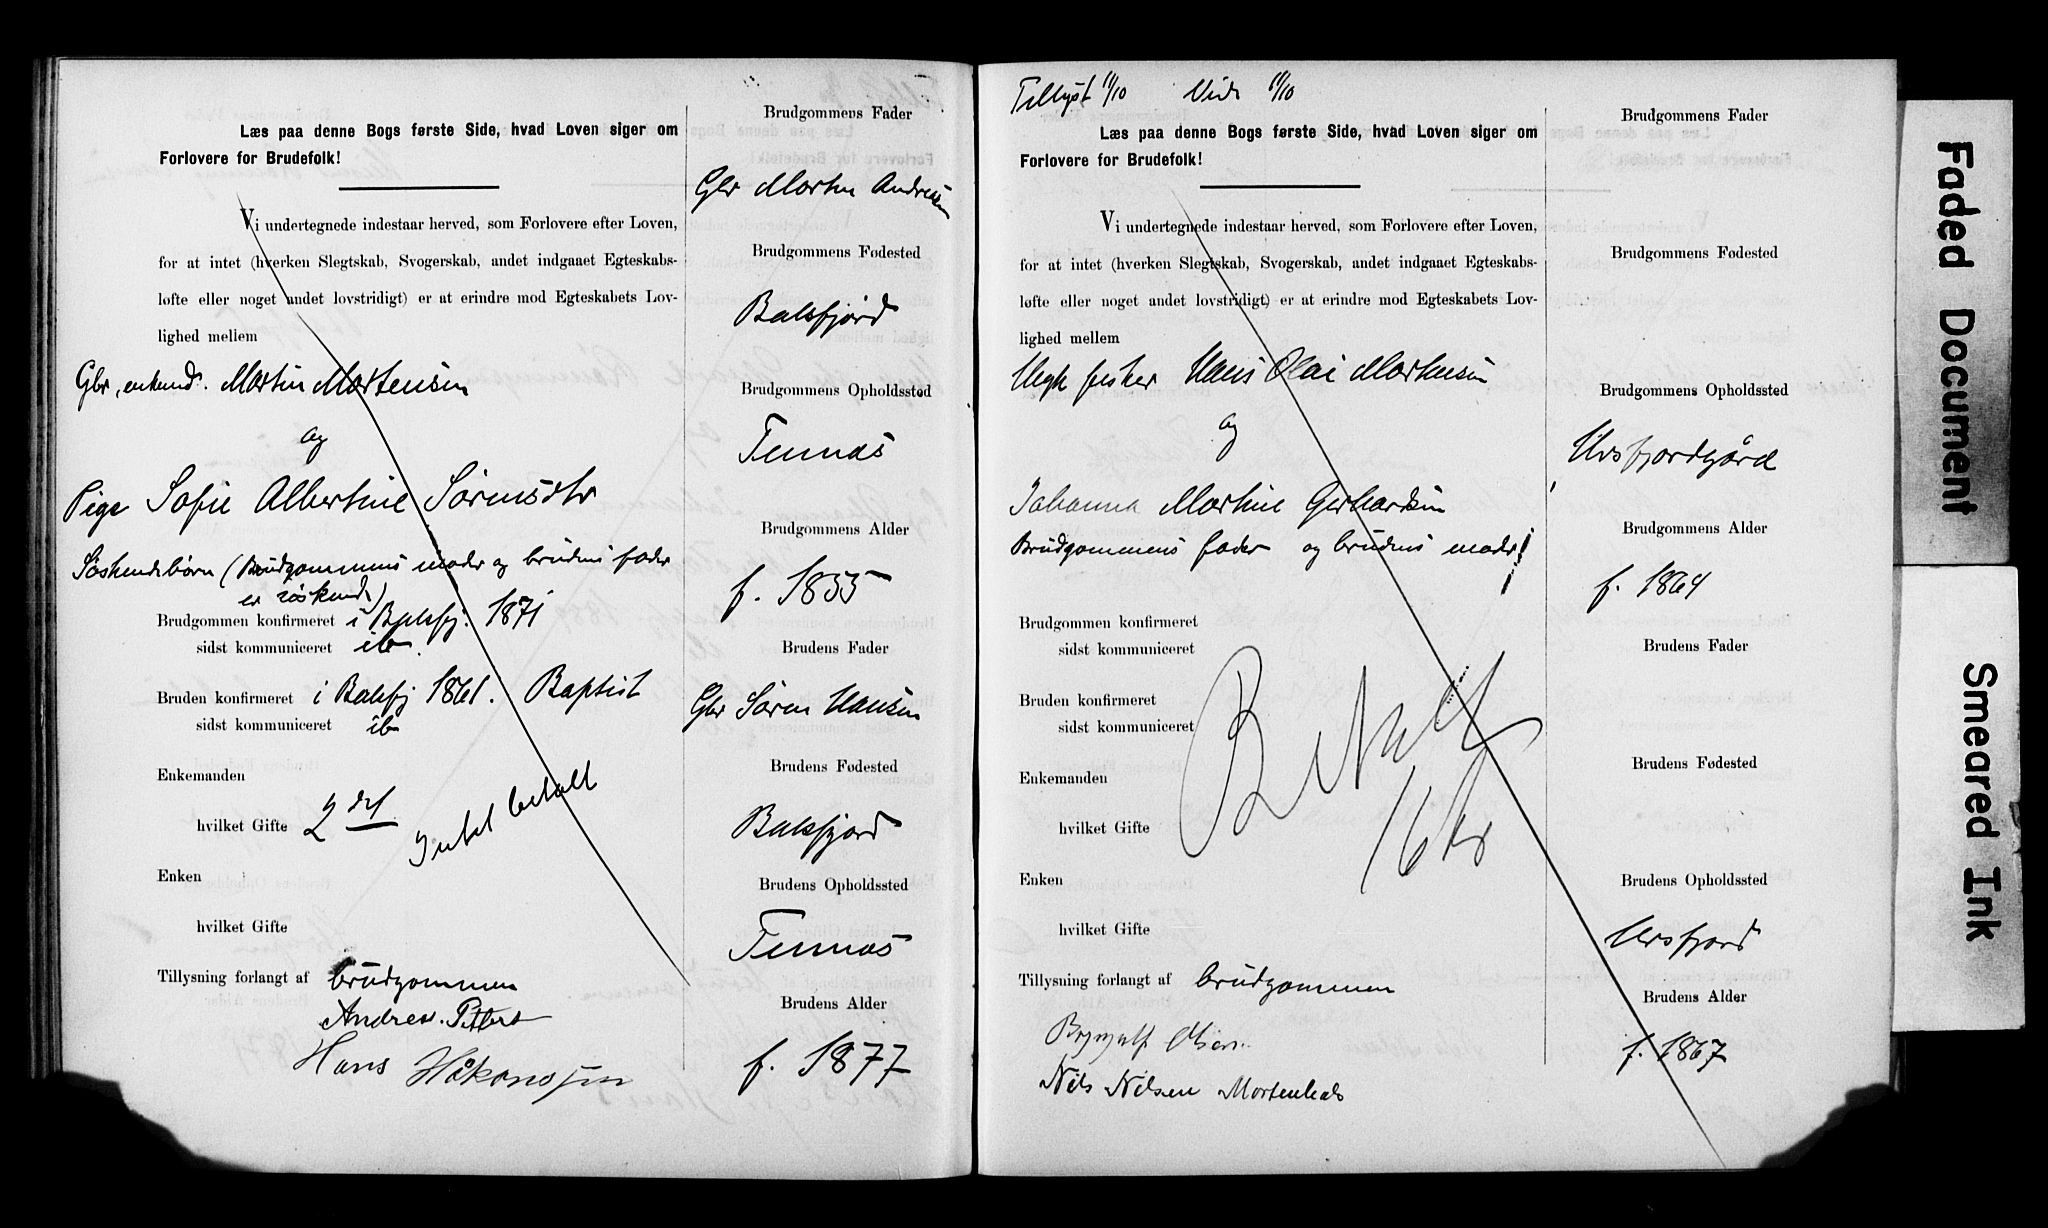 Læs paa denne Bogs første Side, hvad Loven siger om
Forlovere for Brudefolk!
Vi undertegnede indestaar herved, som Forlovere efter Loven,
for at intet (hverken Slegtskab, Svogerskab, andet indgaaet Egteskabs-
løfte eller noget andet lovstridigt) er at erindre mod Egteskabets Lov-
lighed mellem
Gbr, enkemd. Martin Mortensen
og
Pige Sofie Albertine Sørensdtr
Søskendebørn (Brudgommens moder og brudens fader
er søskende)
Brudgommen konfirmeret i Balsfj. 1871
sidst kommuniceret ib.
Bruden konfirmeret i Balsfj 1861. Baptist
sidst kommuniceret ib
Enkemanden
hvilket Gifte 2det
Intet betalt
Enken
hvilket Gifte
Tillysning forlangt af brudgommen
Andreas Peters
Hans Håkonsen
Brudgommens Fader
Gbr Morten Andreassen
Brudgommens Fødested
Balsfjord
Brudgommens Opholdssted
Tennæs
Brudgommens Alder
f. 1855
Brudens Fader
Gbr Søren Hansen
Brudens Fødested
Balsfjord
Brudens Opholdssted
Tennæs
Brudens Alder
f. 1877
Tillyst 11/10 Vide 11/10
Læs paa denne Bogs første Side, hvad Loven siger om
Forlovere for Brudefolk!
Vi undertegnede indestaar herved, som Forlovere efter Loven,
for at intet (hverken Slegtskab, Svogerskab, andet indgaaet Egteskabs-
løfte eller noget andet lovstridigt) er at erindre mod Egteskabets Lov-
lighed mellem
Ungk fisker Hans Olai Mortensen
og
Johanna Martine Gerhardsen
Brudgommens fader og brudens moder!
Brudgommen konfirmeret
sidst kommuniceret
Bruden konfirmeret
sidst kommuniceret
Betalt
16 kr
Enkemanden
hvilket Gifte
Enken
hvilket Gifte
Tillysning forlangt af brudgommen
Brynjulf Olsen
Nils Nilsen Mortenhals
Brudgommens Fader
Brudgommens Fødested
Brudgommens Opholdssted
Ursfjordgård
Brudgommens Alder
f. 1864
Brudens Fader
Brudens Fødested
Brudens Opholdssted
Ursfjord
Brudens Alder
f. 1867
Faded Document
Smeared Ink